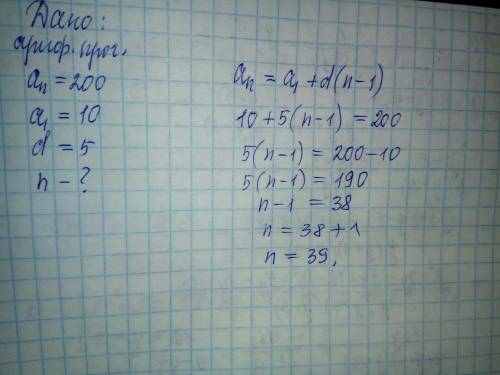 Дано:
ариф. прог.
aₙ = 200
a₁ = 10
d = 5
n - ?
aₙ = a₁ + d(n-1)
10 + 5(n-1) = 200
5(n-1) = 200-10
5(n-1) = 190
n-1 = 38
n = 38+1
n = 39.